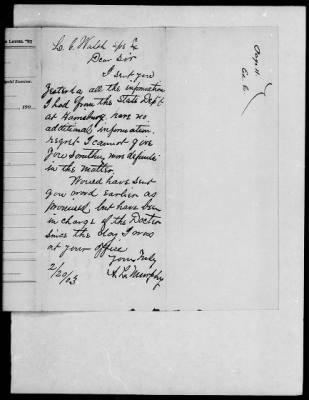 L. C. Walsh
Dear Sir
I sent you
Yesterday all the information
I had from the State Dept
at Harrisburg. have no
additional information.
regret I cannot give
You something more definite
in the matter.
Would have sent
you word earlier as
promised, but have been
in charge of the Doctor
since the day I was
at your office
Yours Truly
A. L. Murphy
2/20/03
190